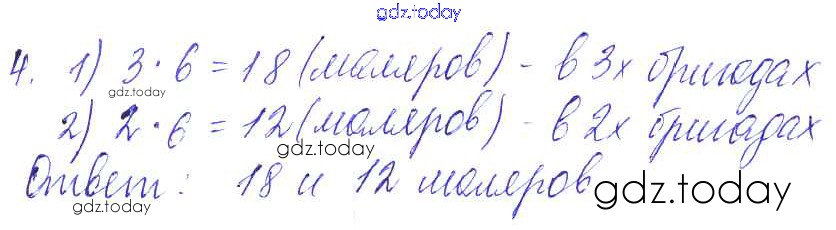 gdz.today
4. 1) 3 · 6 = 18 (маляров) - в 3х бригадах
gdz.today
2) 2 · 6 = 12 (маляров) - в 2х бригадах
gdz.today
Ответ: 18 и 12 маляров
gdz.today
gdz.today